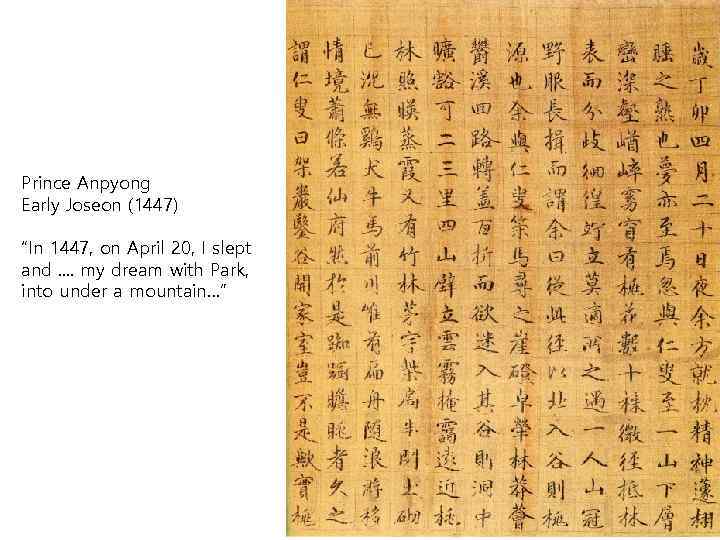 Prince Anpyong
Early Joseon (1447)
“In 1447, on April 20, I slept
and .... my dream with Park,
into under a mountain...”
歲丁卯四月二十日夜余方就枕精神蘧栩
睡之熟也夢亦至焉忽與仁叟至一山下層
巒深壑崷崒窈窅有桃花數十株微徑抵林
表而分歧徊徨竚立莫適所之遇一人山冠
野服長揖而謂余曰從此徑以北入谷則桃
源也余與仁叟策馬尋之崖磴卓犖林莽薈
鬱溪回路轉盖百折而欲迷入其谷則洞中
曠豁可二三里四山壁立雲霧掩靄遠近桃
林照暎蒸霞又有竹林茅宇柴扃半闢土砌
已沈無鷄犬牛馬前川唯有扁舟隨浪游移
情境蕭條若仙府然於是踟躕瞻眺者久之
謂仁叟曰架巖鑿谷開家室豈不是歟實桃